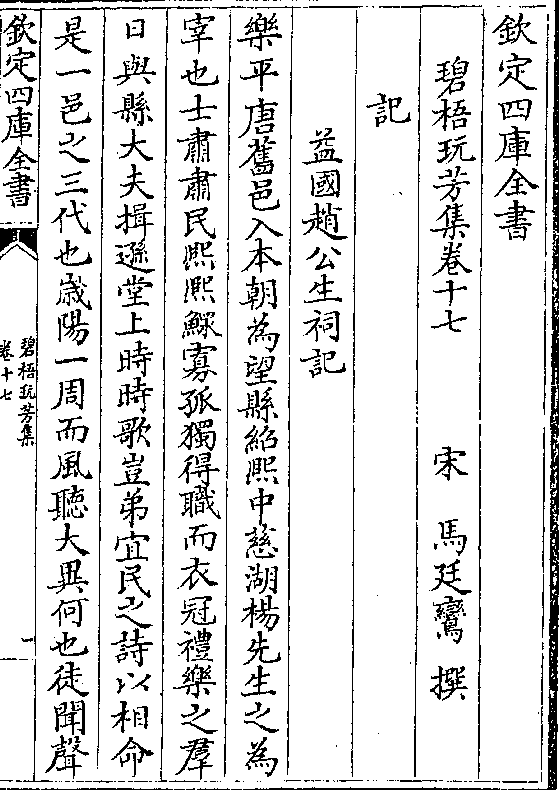 欽定四庫全書
碧梧玩芳集卷十七　宋　馬廷鸞　撰
記
益國趙公生祠記
樂平唐舊邑入本朝為望縣紹熙中慈湖楊先生之為
宰也士肅肅民熙熙鰥寡孤獨得職而衣冠禮樂之羣
日與縣大夫揖遜堂上時時歌豈弟宜民之詩以相命
是一邑之三代也歲陽一周而風聽大異何也徒聞聲
欽定四庫全書
碧梧玩芳集
卷十七
一